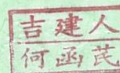 吉建人
何函芪